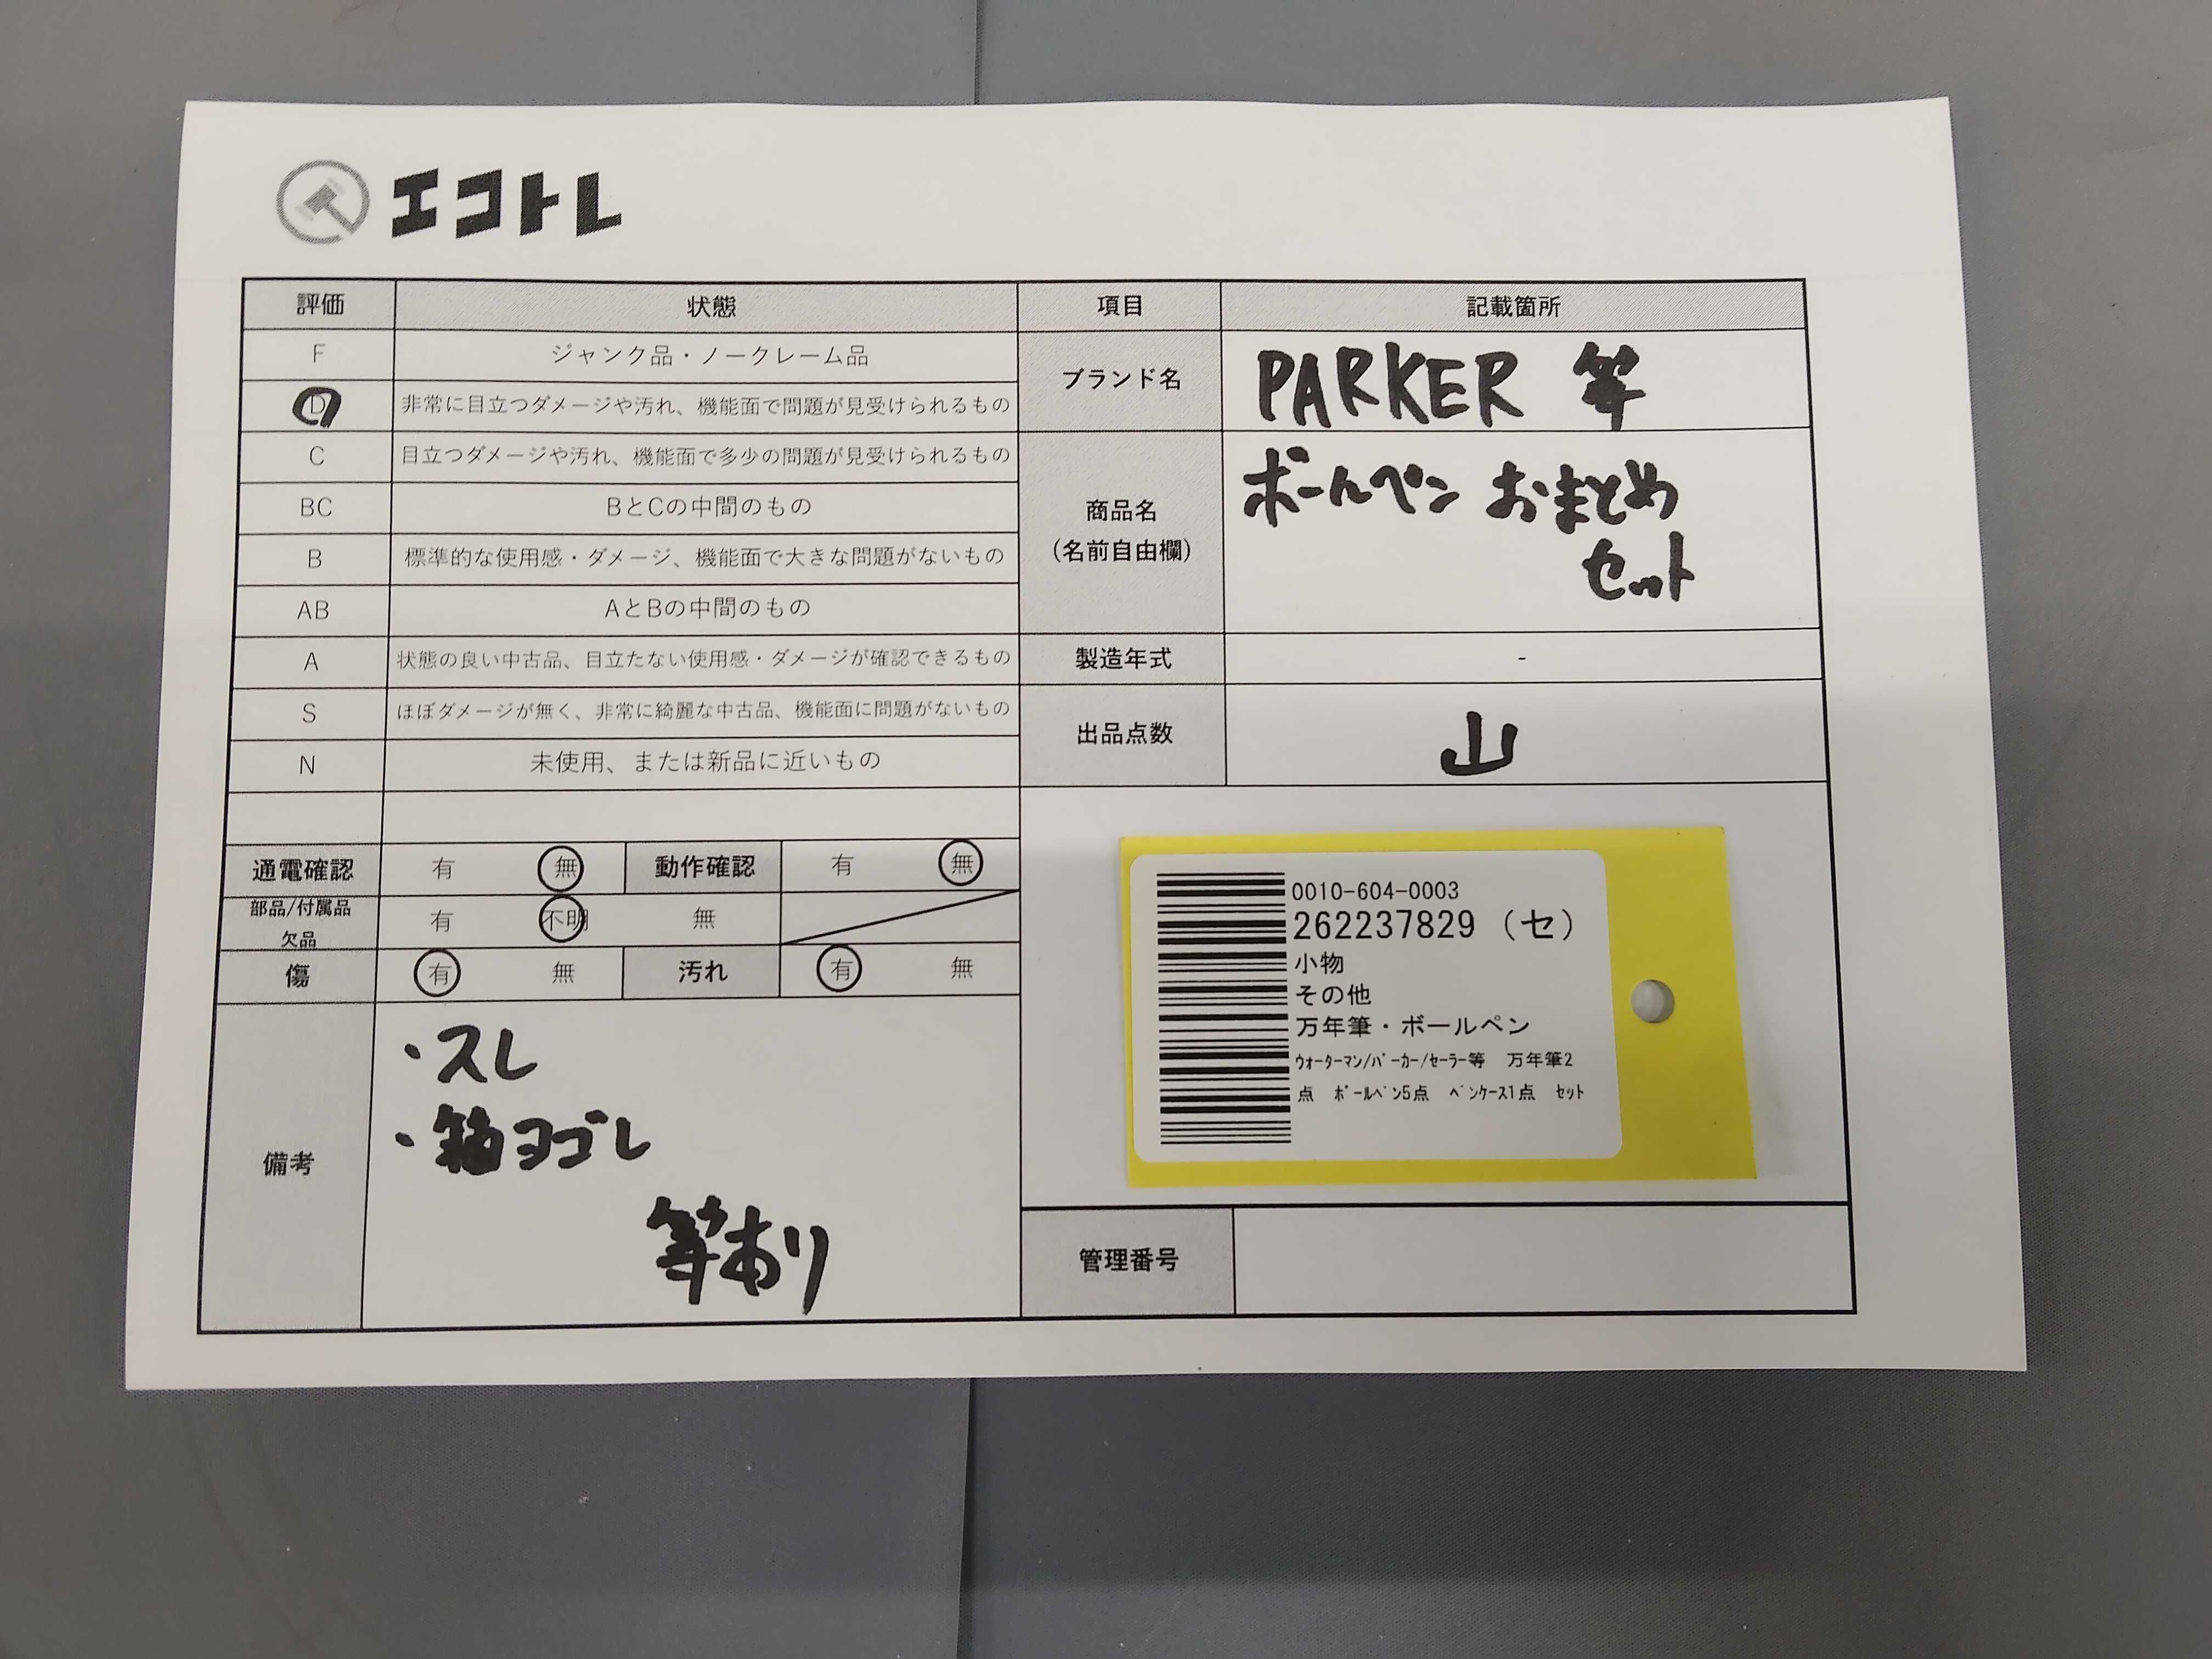 エコトレ
評価 状態 項目 記載箇所
F ジャンク品・ノークレーム品
ブランド名 PARKER 等
D 非常に目立つダメージや汚れ、機能面で問題が見受けられるもの
C 目立つダメージや汚れ、機能面で多少の問題が見受けられるもの
BC BとCの中間のもの
B 標準的な使用感・ダメージ、機能面で大きな問題がないもの
AB AとBの中間のもの
商品名
(名前自由欄)
ボールペン おまとめ
セット
A 状態の良い中古品、目立たない使用感・ダメージが確認できるもの
製造年式 -
S ほぼダメージが無く、非常に綺麗な中古品、機能面に問題がないもの
N 未使用、または新品に近いもの
出品点数 山
通電確認 有 無 動作確認 有 無
部品/付属品
欠品
有 不明 無
傷 有 無 汚れ 有 無
備考
・スレ
・箱ヨゴレ
等あり
0010-604-0003
262237829 (セ)
小物
その他
万年筆・ボールペン
ウォーターマン/パーカー/セーラー等 万年筆2
点 ボールペン5点 ペンケース1点 セット
管理番号